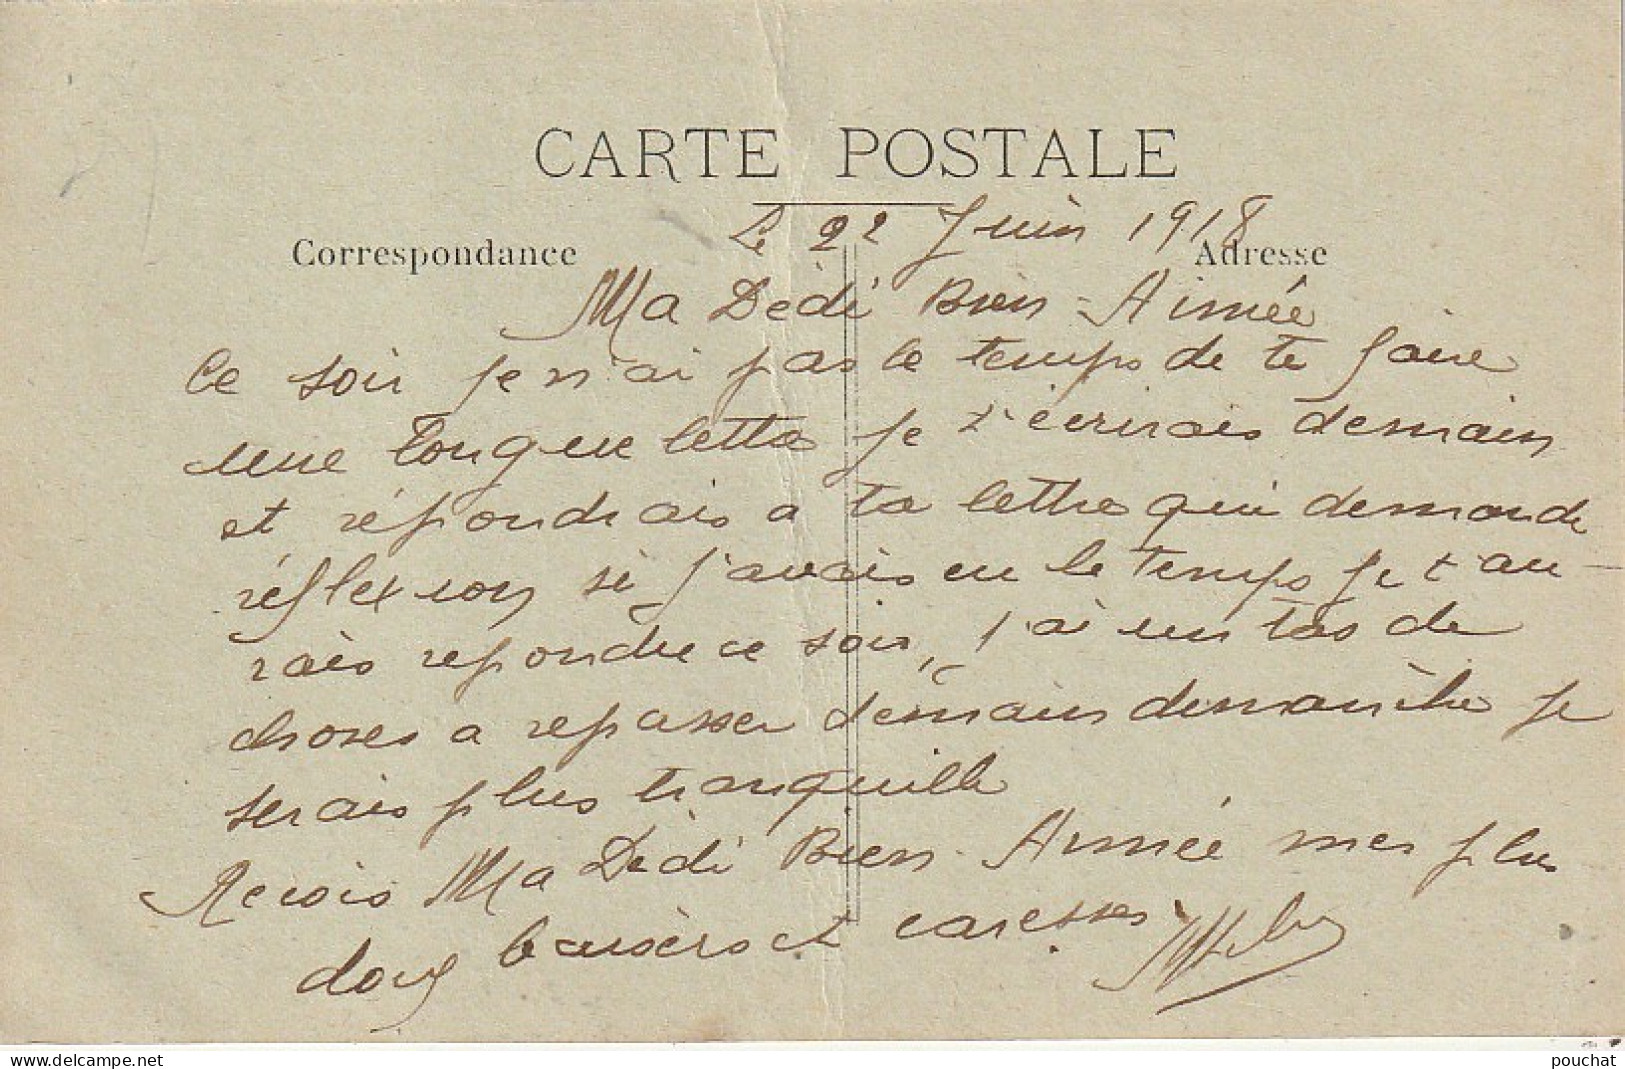 CARTE POSTALE
Le 22 Juin 1918
Correspondance
Adresse
Ma Dédi Bien-Aimée
Ce soir je n'ai pas le temps de te faire
une longue lettre je t'écrirais demain
et répondrais a ta lettre qui demande
réflexion si j'avais eu le temps je t'au-
rais repondue ce soir, j'ai un tas de
choses a repasser demain dimanche je
serais plus tranquille
Recois Ma Dédi Bien-Aimée mes plus
doux baisers et caresses
www.delcampe.net
pouchat